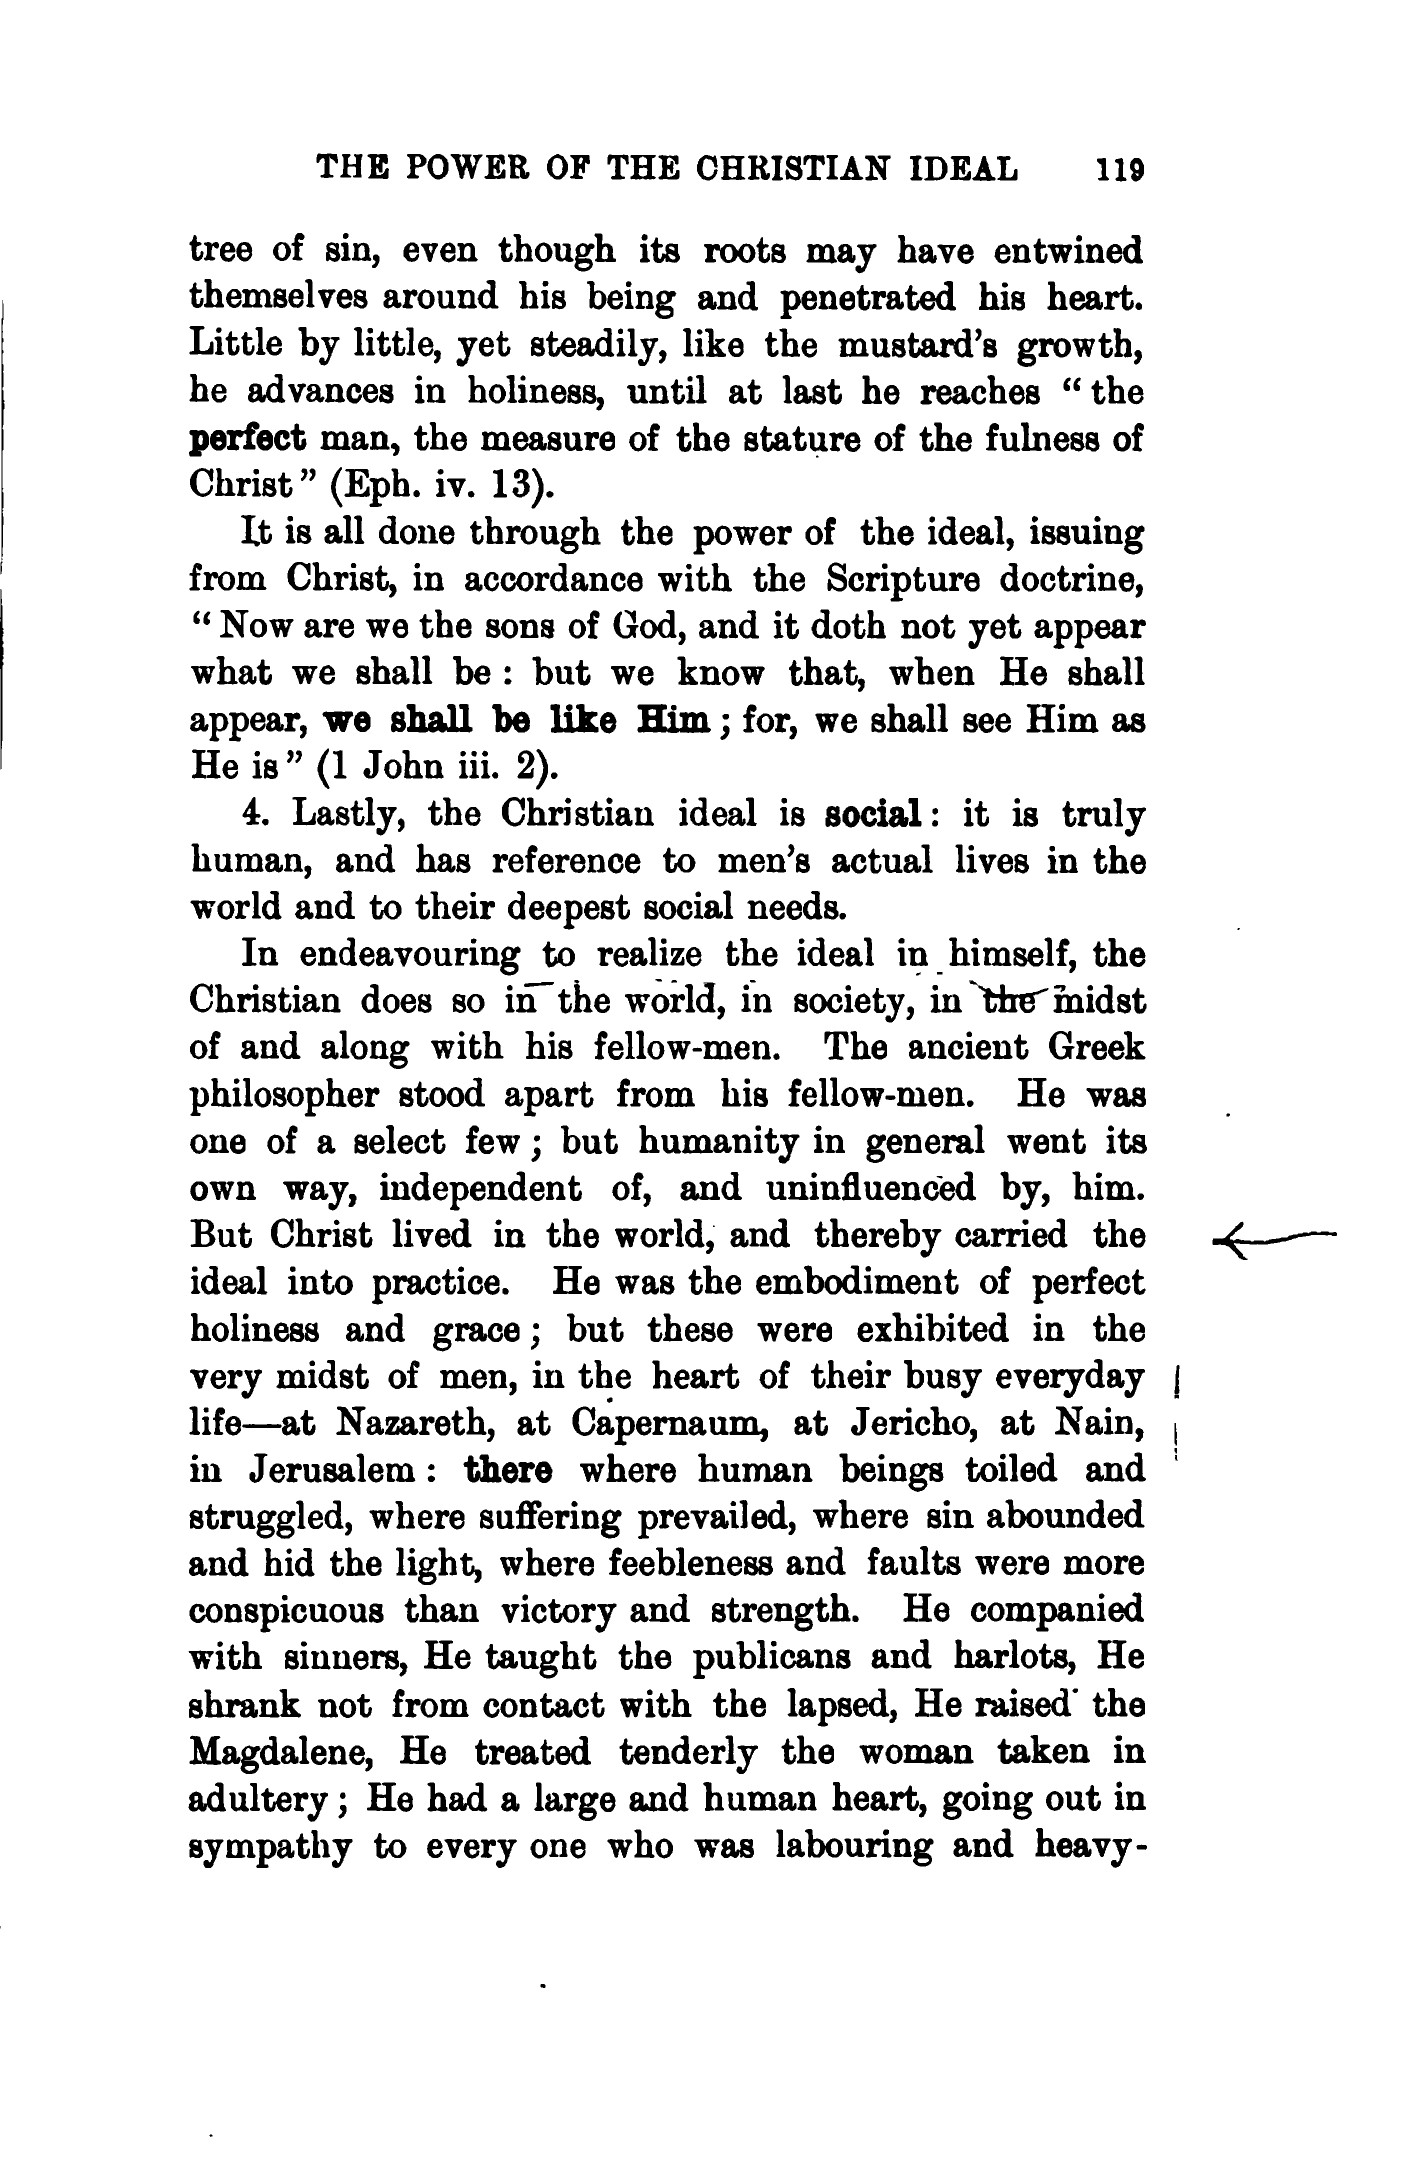 THE POWER OF THE CHRISTIAN IDEAL 119
tree of sin, even though its roots may have entwined
themselves around his being and penetrated his heart.
Little by little, yet steadily, like the mustard's growth,
he advances in holiness, until at last he reaches "the
perfect man, the measure of the stature of the fulness of
Christ" (Eph. iv. 13).
It is all done through the power of the ideal, issuing
from Christ, in accordance with the Scripture doctrine,
"Now are we the sons of God, and it doth not yet appear
what we shall be: but we know that, when He shall
appear, we shall be like Him; for, we shall see Him as
He is" (1 John iii. 2).
4. Lastly, the Christian ideal is social: it is truly
human, and has reference to men's actual lives in the
world and to their deepest social needs.
In endeavouring to realize the ideal in himself, the
Christian does so in the world, in society, in the midst
of and along with his fellow-men. The ancient Greek
philosopher stood apart from his fellow-men. He was
one of a select few; but humanity in general went its
own way, independent of, and uninfluenced by, him.
But Christ lived in the world, and thereby carried the
ideal into practice. He was the embodiment of perfect
holiness and grace; but these were exhibited in the
very midst of men, in the heart of their busy everyday
life—at Nazareth, at Capernaum, at Jericho, at Nain,
in Jerusalem: there where human beings toiled and
struggled, where suffering prevailed, where sin abounded
and hid the light, where feebleness and faults were more
conspicuous than victory and strength. He companied
with sinners, He taught the publicans and harlots, He
shrank not from contact with the lapsed, He raised the
Magdalene, He treated tenderly the woman taken in
adultery; He had a large and human heart, going out in
sympathy to every one who was labouring and heavy-